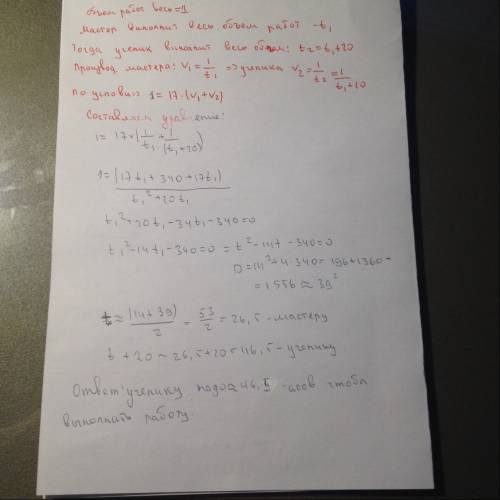 объём работы весь=1
Мастор выполнит весь объем работ - t₁
Тогда ученик выполнит весь объем: t₂=t₁+20
Производ. мастера: V₁=1/t₁ => ученика V₂=1/t₂=1/(t₁+20)
по условию 1=17·(V₁+V₂)
Составляем уравнение:
1=17×(1/t₁+1/(t₁+20))
1=(17t₁+340+17t₁)/(t₁²+20t₁)
t₁²+20t₁-34t₁-340=0
t₁²-14t₁-340=0 = t²-14t-340=0
D=14²+4·340=196+1360=
=1556≈39²
t≈(14+39)/2=53/2=26,5-мастеру
t+20~26,5+20=46,5-ученику
Ответ: ученику надо≈46,5 часов чтоба
выполнать работу